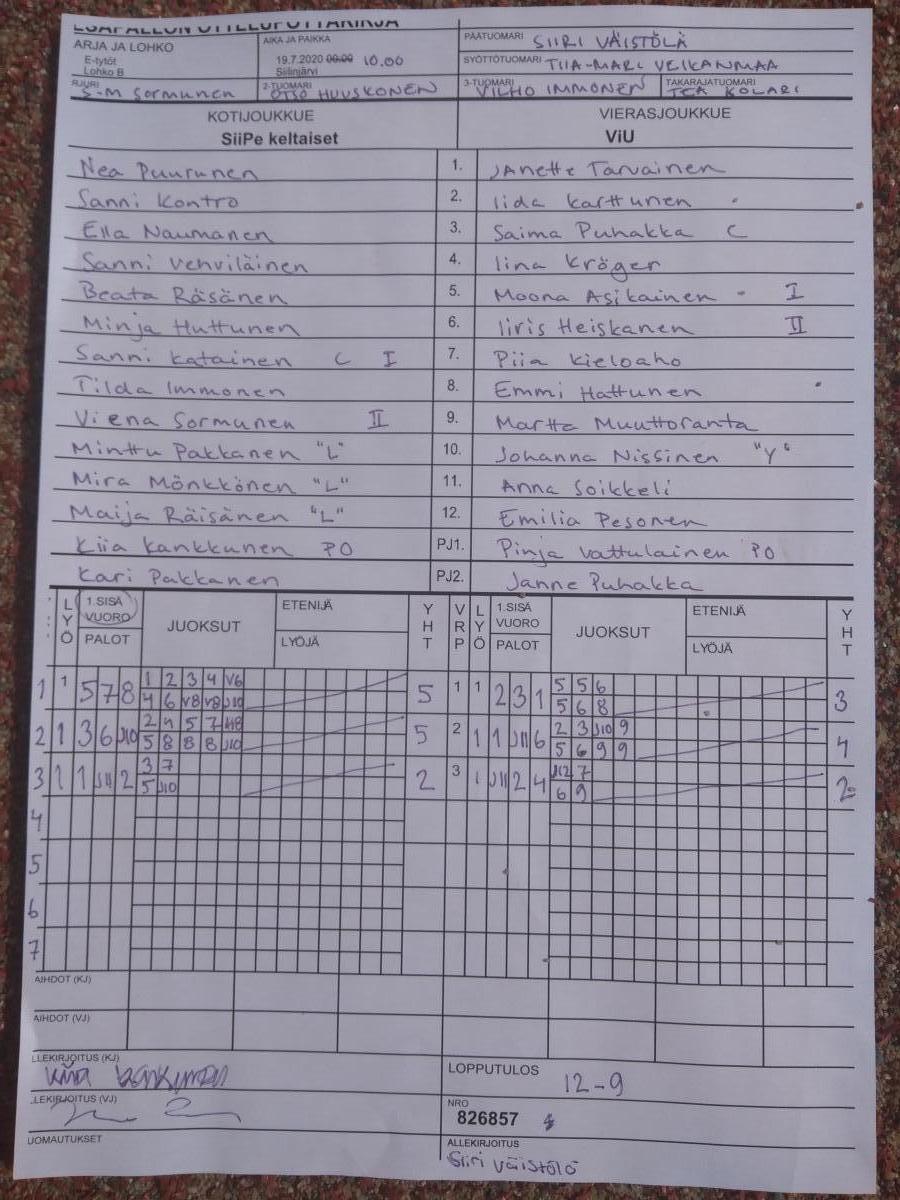 ESÄPALLON OTTELUPÖYTÄKIRJA
ARJA JA LOHKO
E-tytöt
Lohko B
AIKA JA PAIKKA
19.7.2020 00.00 10.00
Siilinjärvi
PÄÄTUOMARI SIIRI VÄISTÖLÄ
SYÖTTÖTUOMARI TIIA-MARI VEIKANMAA
RJURI S-M Sormunen
2-TUOMARI OTSO HUUSKONEN
3-TUOMARI VILHO IMMONEN
TAKARAJATUOMARI TEA KOLARI
KOTIJOUKKUE VIERASJOUKKUE
SiiPe keltaiset ViU
Nea Puurunen 1. JAnette Tarvainen
Sanni Kontro 2. Iida Karttunen
Ella Naumanen 3. Saima Puhakka C
Sanni Vehviläinen 4. Iina Kröger
Beata Räsänen 5. Moona Asikainen - I
Minja Huttunen 6. Iiris Heiskanen II
Sanni Katainen C I 7. Piia Kieloaho
Tilda Immonen 8. Emmi Hattunen
Viena Sormunen II 9. Martta Muuttoranta
Minttu Pakkanen "L" 10. Johanna Nissinen "Y"
Mira Mönkkönen "L" 11. Anna Soikkeli
Maija Räisänen "L" 12. Emilia Pesonen
Kiia Kankkunen PO PJ1. Pinja Vattulainen PO
Kari Pakkanen PJ2. Janne Puhakka
LYÖ 1.SISÄ VUORO PALOT JUOKSUT ETENIJÄ LYÖJÄ YHT VRP LYÖ 1.SISÄ VUORO PALOT JUOKSUT ETENIJÄ LYÖJÄ YHT
1 1 5 7 8 1 2 3 4 V6 5 1 1 2 3 1 5 5 6 3
4 6 V8 V8 J10 5 6 8
2 1 3 6 J10 2 4 5 7 5 2 1 1 J11 6 2 3 J10 9 4
5 8 8 8 J10 5 6 9 9
3 1 1 J11 2 3 7 2 3 1 J11 2 4 J12 7 2
5 J10 6 9
4
5
6
7
AIHDOT (KJ)
AIHDOT (VJ)
LLEKIRJOITUS (KJ) Kiia Kankkunen
LOPPUTULOS 12-9
LEKIRJOITUS (VJ)
NRO
826857
UOMAUTUKSET
ALLEKIRJOITUS
Siiri Väistölä